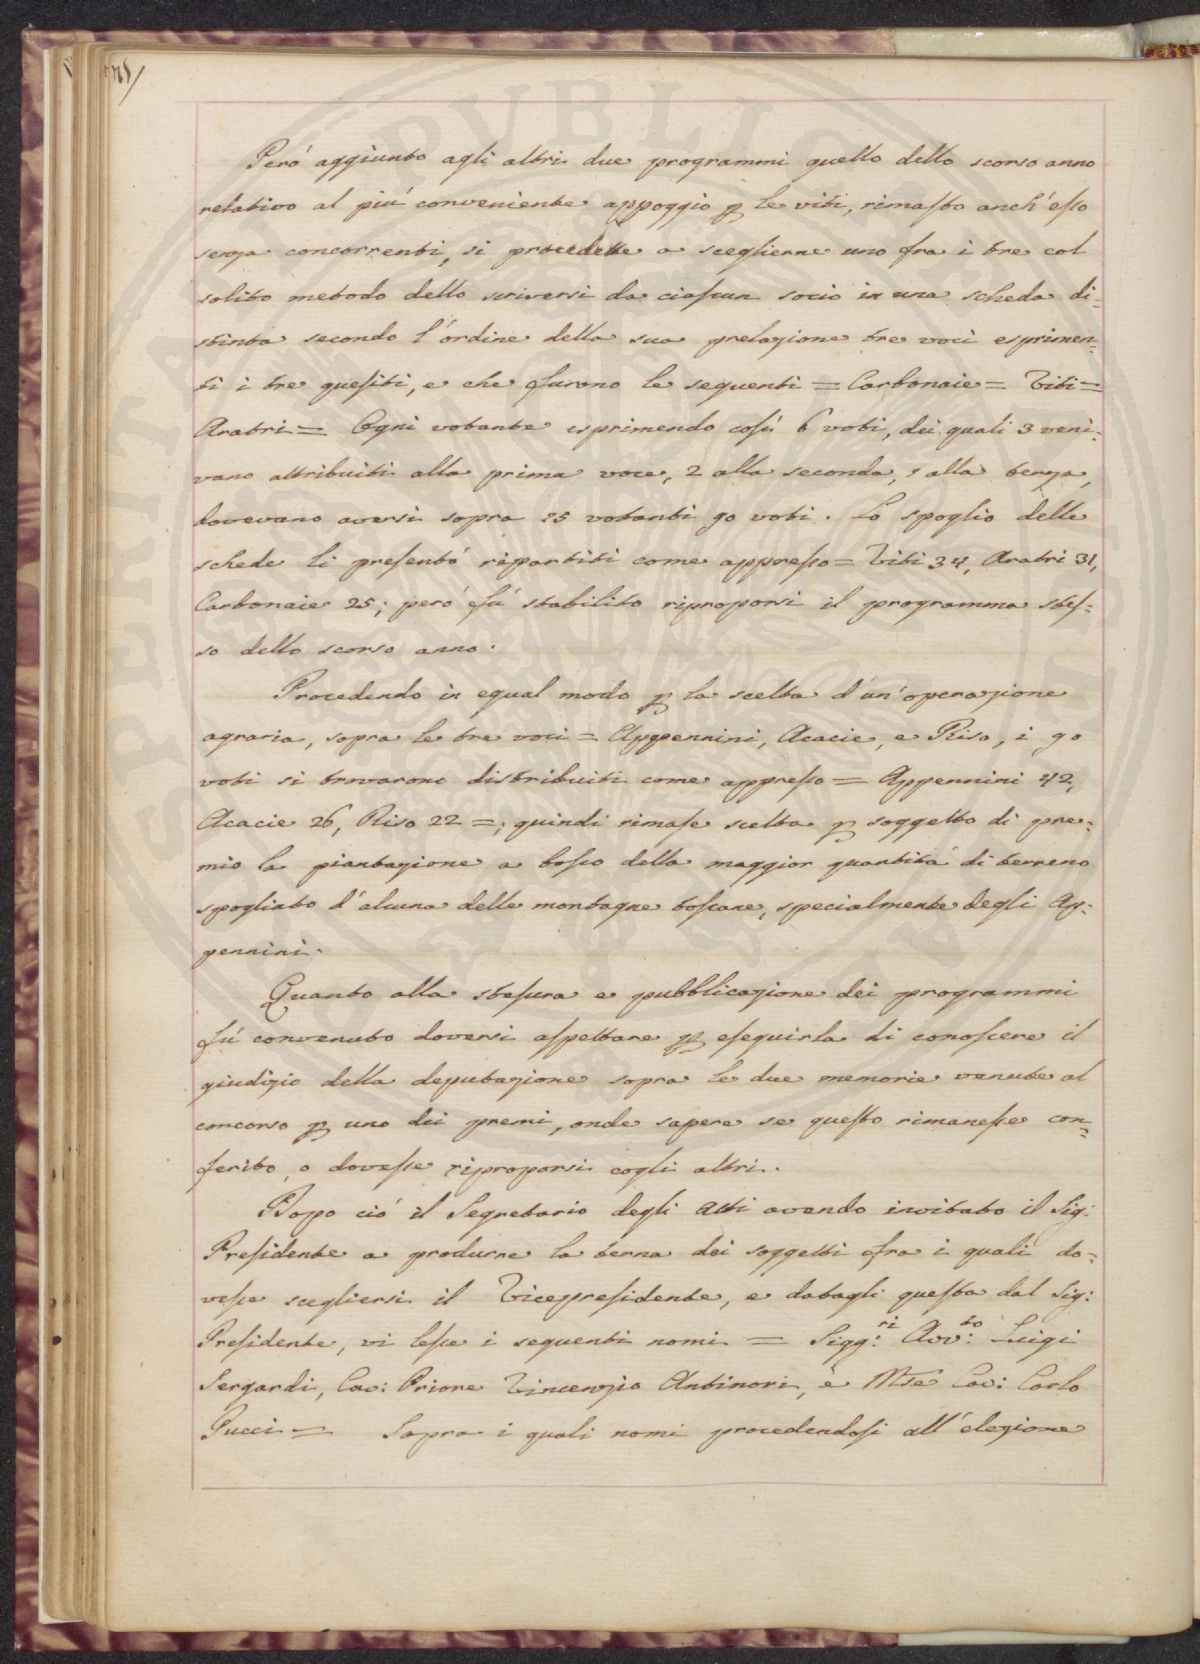 Però aggiunto agli altri due programmi quello dello scorso anno
relativo al più conveniente appoggio p le viti, rimasto anch'esso
senza concorrenti, si procedette a sceglierne uno fra i tre col
solito metodo dello scriversi da ciascun socio in una scheda di=
stinta secondo l'ordine della sua prelazione tre voci esprimen=
ti i tre quesiti, e che furono le seguenti = Carbonaie = Viti =
Aratri = Ogni votante esprimendo così 6 voti, dei quali 3 veni=
vano attribuiti alla prima voce, 2 alla seconda, 1 alla terza,
dovevano aversi sopra 15 votanti 90 voti. Lo spoglio delle
schede li presentò ripartiti come appresso = Viti 34, Aratri 31,
Carbonaie 25; però fù stabilito riproporsi il programma stes=
so dello scorso anno.
Procedendo in egual modo p la scelta d'un'operazione
agraria, sopra le tre voci = Appennini, Acacie, e Riso, i 90
voti si trovarono distribuiti come appresso = Appennini 42,
Acacie 26, Riso 22 =; quindi rimase scelta p soggetto di pre=
mio la piantazione a bosco della maggior quantità di terreno
spogliato d'alcuna delle montagne toscane, specialmente degli Ap=
pennini.
Quanto alla stesura e pubblicazione dei programmi
fù convenuto doversi aspettare p eseguirla di conoscere il
giudizio della deputazione sopra le due memorie venute al
concorso p uno dei premi, onde sapere se questo rimanesse con=
ferito, o dovesse riproporsi cogli altri.
Dopo ciò il Segretario degli Atti avendo invitato il Sig:
Presidente a produrre la terna dei soggetti fra i quali do=
vesse scegliersi il Vicepresidente, e datagli questa dal Sig:
Presidente, vi lesse i seguenti nomi = Sigg:ri Avv:to Luigi
Sergardi, Cav: Priore Vincenzio Antinori, e Mse Cav: Carlo
Pucci = Sopra i quali nomi procedendosi all'elezione
PVBLIC